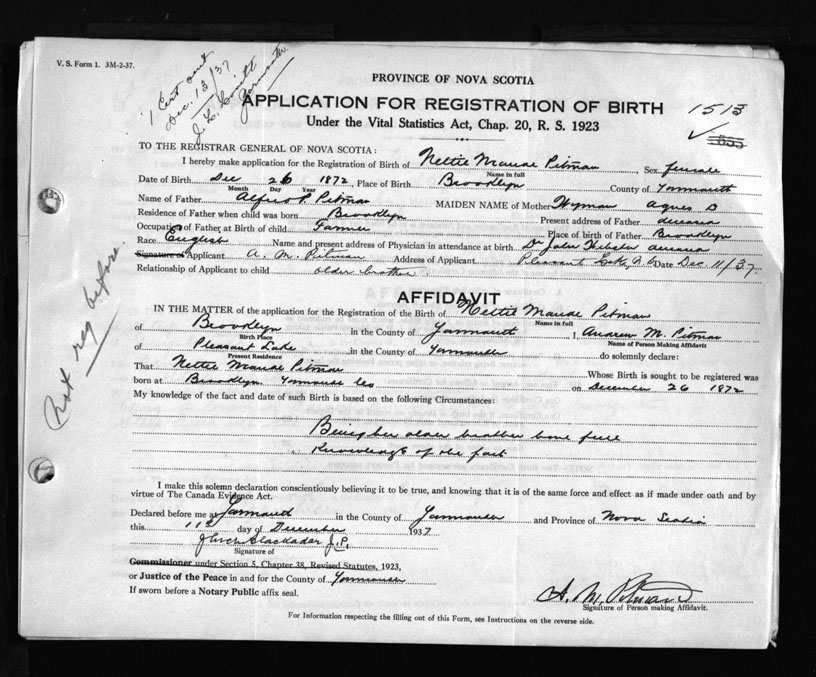 V. S. Form 1. 3M-2-37.
1 Cert out
Dec. 13/37
Yarmouth.
PROVINCE OF NOVA SCOTIA
APPLICATION FOR REGISTRATION OF BIRTH
1513
Under the Vital Statistics Act, Chap. 20, R. S. 1923
TO THE REGISTRAR GENERAL OF NOVA SCOTIA:
I hereby make application for the Registration of Birth of Nettie Maude Pitman, Sex female
Name in full
Date of Birth Dec 26 1872, Place of Birth Brooklyn County of Yarmouth
Month Day Year
Name of Father Alfred P. Pitman MAIDEN NAME of Mother Wyman Agnes D
Residence of Father when child was born Brooklyn Present address of Father
Occupation of Father at Birth of child Farmer Place of birth of Father Brooklyn
Race English Name and present address of Physician in attendance at birth Dr John Webster
Signature of Applicant A. M. Pitman Address of Applicant Pleasant Lake, N.S. Date Dec. 11/37
Relationship of Applicant to child older brother
Not reg before.
AFFIDAVIT
IN THE MATTER of the application for the Registration of the Birth of Nettie Maude Pitman
Name in full
of Brooklyn in the County of Yarmouth I, Andrew M. Pitman
Birth Place Name of Person Making Affidavit
of Pleasant Lake in the County of Yarmouth do solemnly declare:
Present Residence
That Nettie Maude Pitman Whose Birth is sought to be registered was
born at Brooklyn Yarmouth Co on December 26 1872
My knowledge of the fact and date of such Birth is based on the following Circumstances:
Being her older brother have full
Knowledge of the fact
I make this solemn declaration conscientiously believing it to be true, and knowing that it is of the same force and effect as if made under oath and by
virtue of The Canada Evidence Act.
Declared before me at Yarmouth in the County of Yarmouth and Province of Nova Scotia
this 11th day of December 1937
Blackadar J.P.
Signature of
Commissioner under Section 5, Chapter 38, Revised Statutes, 1923,
or Justice of the Peace in and for the County of Yarmouth
If sworn before a Notary Public affix seal.
A. M. Pitman
Signature of Person making Affidavit.
For Information respecting the filling out of this Form, see Instructions on the reverse side.